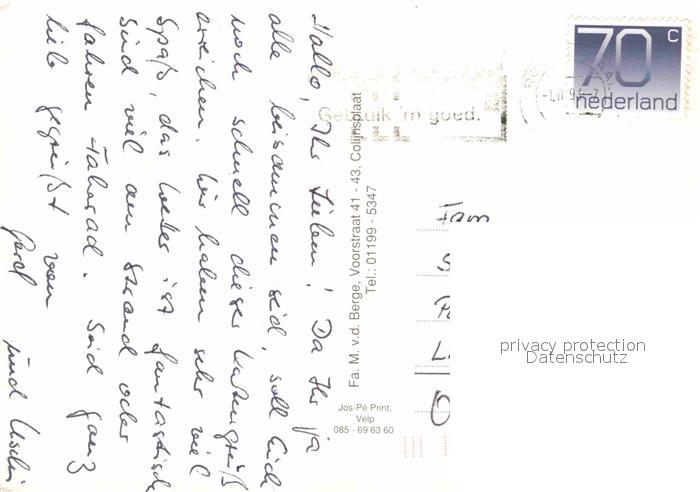 Hallo, Ihr Lieben! Da Ihr ja
alle beisammen seid, soll Euch
noch schnell dieser Kartengruß
erreichen. Wir haben sehr viel
Spaß, das Wetter ist fantastisch
Sind viel am Strand oder
fahren Fahrrad. Seid ganz
lieb gegrüßt von
Gerd und Uschi
Fa. M. v.d. Berge, Voorstraat 41 - 43, Colijnsplaat
Tel.: 01199 - 5347
Jos-Pé Print,
Velp
085 - 69 63 60
Gebruik 'm goed.
70 c
nederland
Fam
privacy protection
Datenschutz